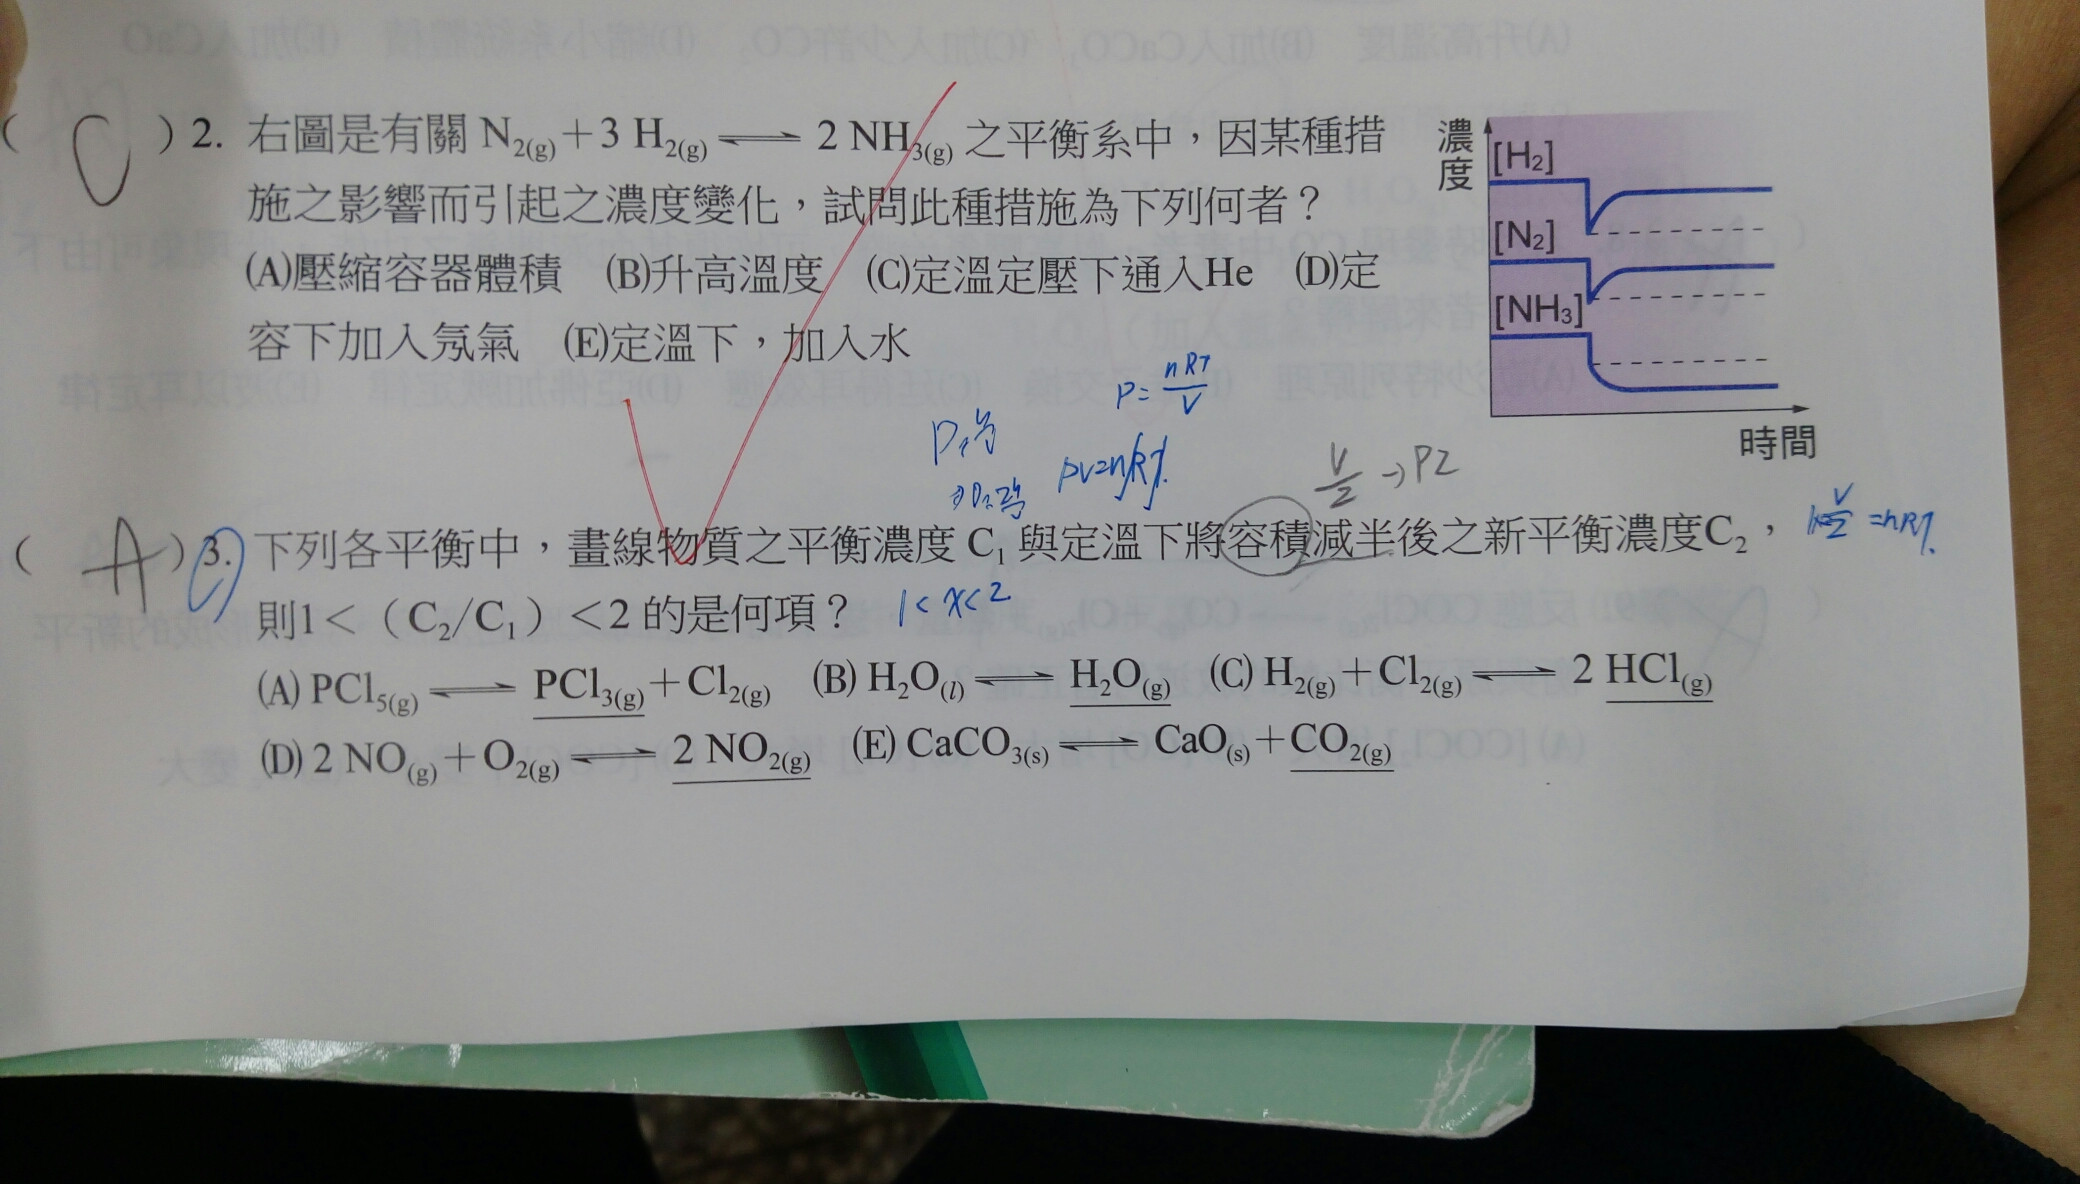 ( C ) 2. 右圖是有關 N₂(g)＋3 H₂(g) ⇌ 2 NH₃(g) 之平衡系中，因某種措
施之影響而引起之濃度變化，試問此種措施為下列何者？
(A)壓縮容器體積 (B)升高溫度 (C)定溫定壓下通入He (D)定
容下加入氖氣 (E)定溫下，加入水
濃度
[H₂]
[N₂]
[NH₃]
時間
P= nRT/V
PV=nRT
V/2 → P2
( A ) 3. 下列各平衡中，畫線物質之平衡濃度 C₁ 與定溫下將容積減半後之新平衡濃度C₂，
V/2 =nRT
則1＜（C₂/C₁）＜2 的是何項？ 1<x<2
(A) PCl₅(g) ⇌ PCl₃(g)＋Cl₂(g) (B) H₂O(l) ⇌ H₂O(g) (C) H₂(g)＋Cl₂(g) ⇌ 2 HCl(g)
(D) 2 NO(g)＋O₂(g) ⇌ 2 NO₂(g) (E) CaCO₃(s) ⇌ CaO(s)＋CO₂(g)